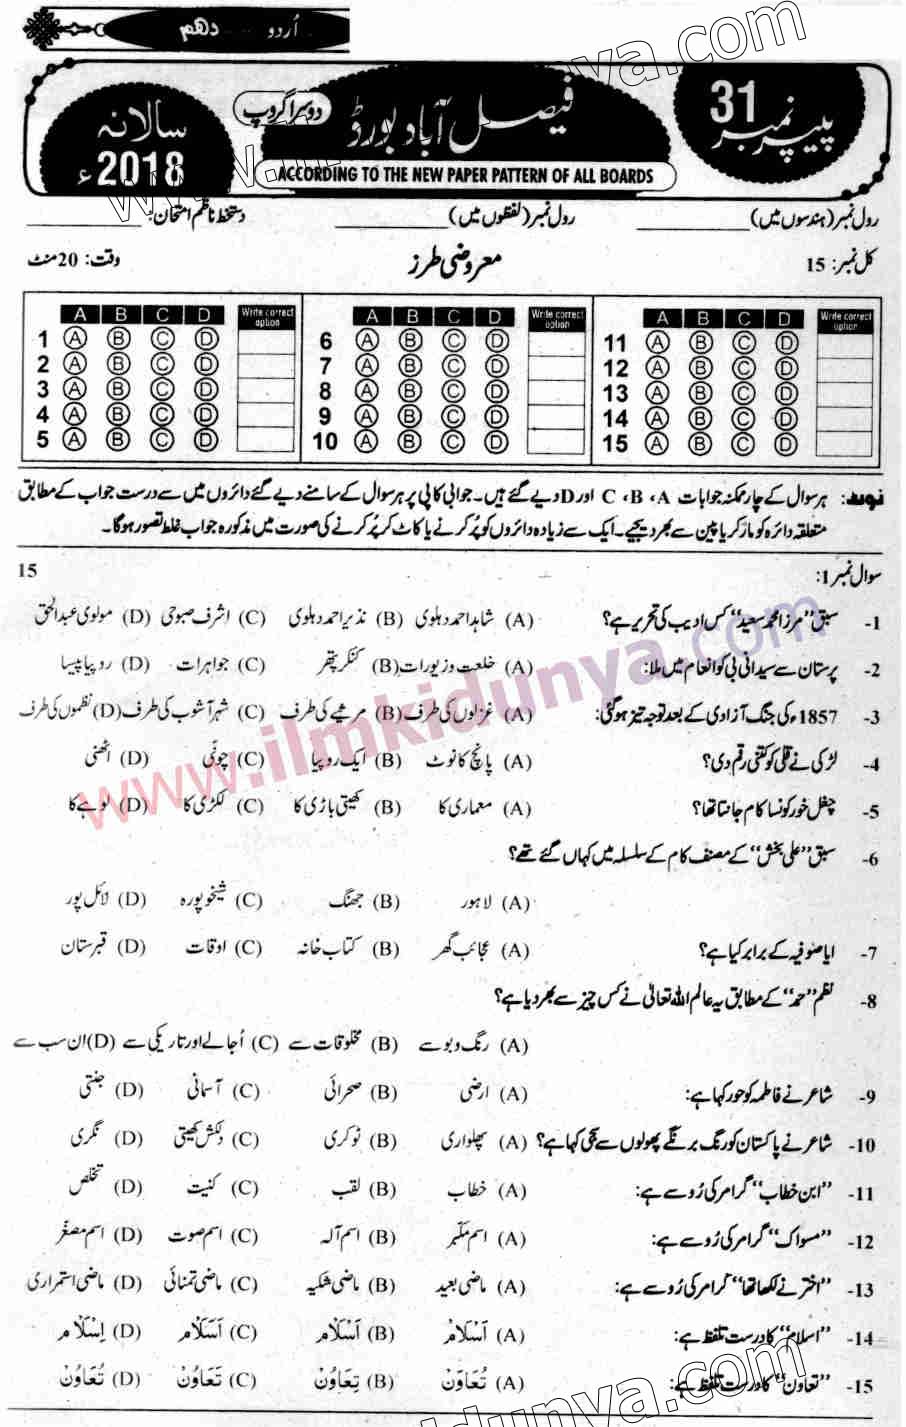 اُردو ..... دہم
پیپر نمبر 31
فیصل آباد بورڈ
دوسرا گروپ
سالانہ
2018ء
ACCORDING TO THE NEW PAPER PATTERN OF ALL BOARDS
رول نمبر (ہندسوں میں) ____________ رول نمبر (لفظوں میں) ____________ دستخط ناظم امتحان: ____________
کل نمبر: 15 معروضی طرز وقت: 20 منٹ
A B C D Write correct option A B C D Write correct option A B C D Write correct option
1 A B C D 6 A B C D 11 A B C D
2 A B C D 7 A B C D 12 A B C D
3 A B C D 8 A B C D 13 A B C D
4 A B C D 9 A B C D 14 A B C D
5 A B C D 10 A B C D 15 A B C D
نوٹ: ہر سوال کے چار ممکنہ جوابات A، B، C اور D دیے گئے ہیں۔ جوابی کاپی پر ہر سوال کے سامنے دیے گئے دائروں میں سے درست جواب کے مطابق
متعلقہ دائرہ کو مارکر یا پین سے بھر دیجیے۔ ایک سے زیادہ دائروں کو پُر کرنے یا کاٹ کر پُر کرنے کی صورت میں مذکورہ جواب غلط تصور ہوگا۔
سوال نمبر 1: 15
1- سبق ”مرزا محمد سعید“ کس ادیب کی تحریر ہے؟ (A) شاہد احمد دہلوی (B) نذیر احمد دہلوی (C) اشرف صبوحی (D) مولوی عبدالحق
2- پرستان سے سیدانی بی کو انعام میں ملا: (A) خلعت و زیورات (B) کنکر پتھر (C) جواہرات (D) روپیا پیسا
3- 1857ء کی جنگ آزادی کے بعد توجہ تیز ہوگئی: (A) غزلوں کی طرف (B) مرثیے کی طرف (C) شہر آشوب کی طرف (D) نظموں کی طرف
4- لڑکی نے قلی کو کتنی رقم دی؟ (A) پانچ کا نوٹ (B) ایک روپیا (C) چونّی (D) اٹھنی
5- چغل خور کونسا کام جانتا تھا؟ (A) معماری کا (B) کھیتی باڑی کا (C) لکڑی کا (D) لوہے کا
6- سبق ”علی بخش“ کے مصنف کام کے سلسلہ میں کہاں گئے تھے؟
(A) لاہور (B) جھنگ (C) شیخوپورہ (D) لائل پور
7- ایا صوفیہ کے برابر کیا ہے؟ (A) عجائب گھر (B) کتاب خانہ (C) اوقات (D) قبرستان
8- نظم ”حمد“ کے مطابق یہ عالم اللہ تعالیٰ نے کس چیز سے بھر دیا ہے؟
(A) رنگ و بو سے (B) مخلوقات سے (C) اُجالے اور تاریکی سے (D) ان سب سے
9- شاعر نے فاطمہ کو حور کہا ہے: (A) ارضی (B) صحرائی (C) آسمانی (D) جنتی
10- شاعر نے پاکستان کو رنگ برنگے پھولوں سے سجی کہا ہے؟ (A) پھلواری (B) ٹوکری (C) دلکش کھیتی (D) نگری
11- ”ابن خطاب“ گرامر کی رُو سے ہے: (A) خطاب (B) لقب (C) کنیت (D) تخلص
12- ”مسواک“ گرامر کی رُو سے ہے: (A) اسم مکبّر (B) اسم آلہ (C) اسم صوت (D) اسم مصغّر
13- ”اختر نے لکھا تھا“ گرامر کی رُو سے ہے: (A) ماضی بعید (B) ماضی شکیہ (C) ماضی تمنائی (D) ماضی استمراری
14- ”اسلام“ کا درست تلفظ ہے: (A) اَسْلَامْ (B) اَسْلَامْ (C) اَسَلَامْ (D) اِسْلَامْ
15- ”تعاون“ کا درست تلفظ ہے: (A) تُعَاوَنْ (B) تِعَاوُنْ (C) تَعَاوَنْ (D) تَعَاوُنْ
www.ilmkidunya.com